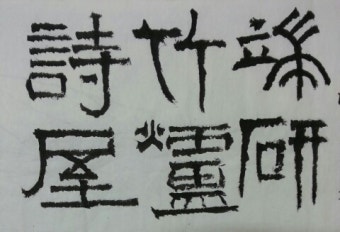 端研
竹爐
詩屋